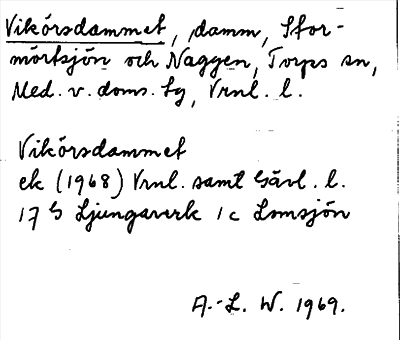 Vikörsdammet, damm, Stor-
mörtsjön och Naggen, Torps sn,
Med. v. doms. tg, Vrnl. l.
Vikörsdammet
ek (1968) Vrnl. samt Gävl. l.
17 G Ljungaverk 1c Lomsjön
A.-L. W. 1969.